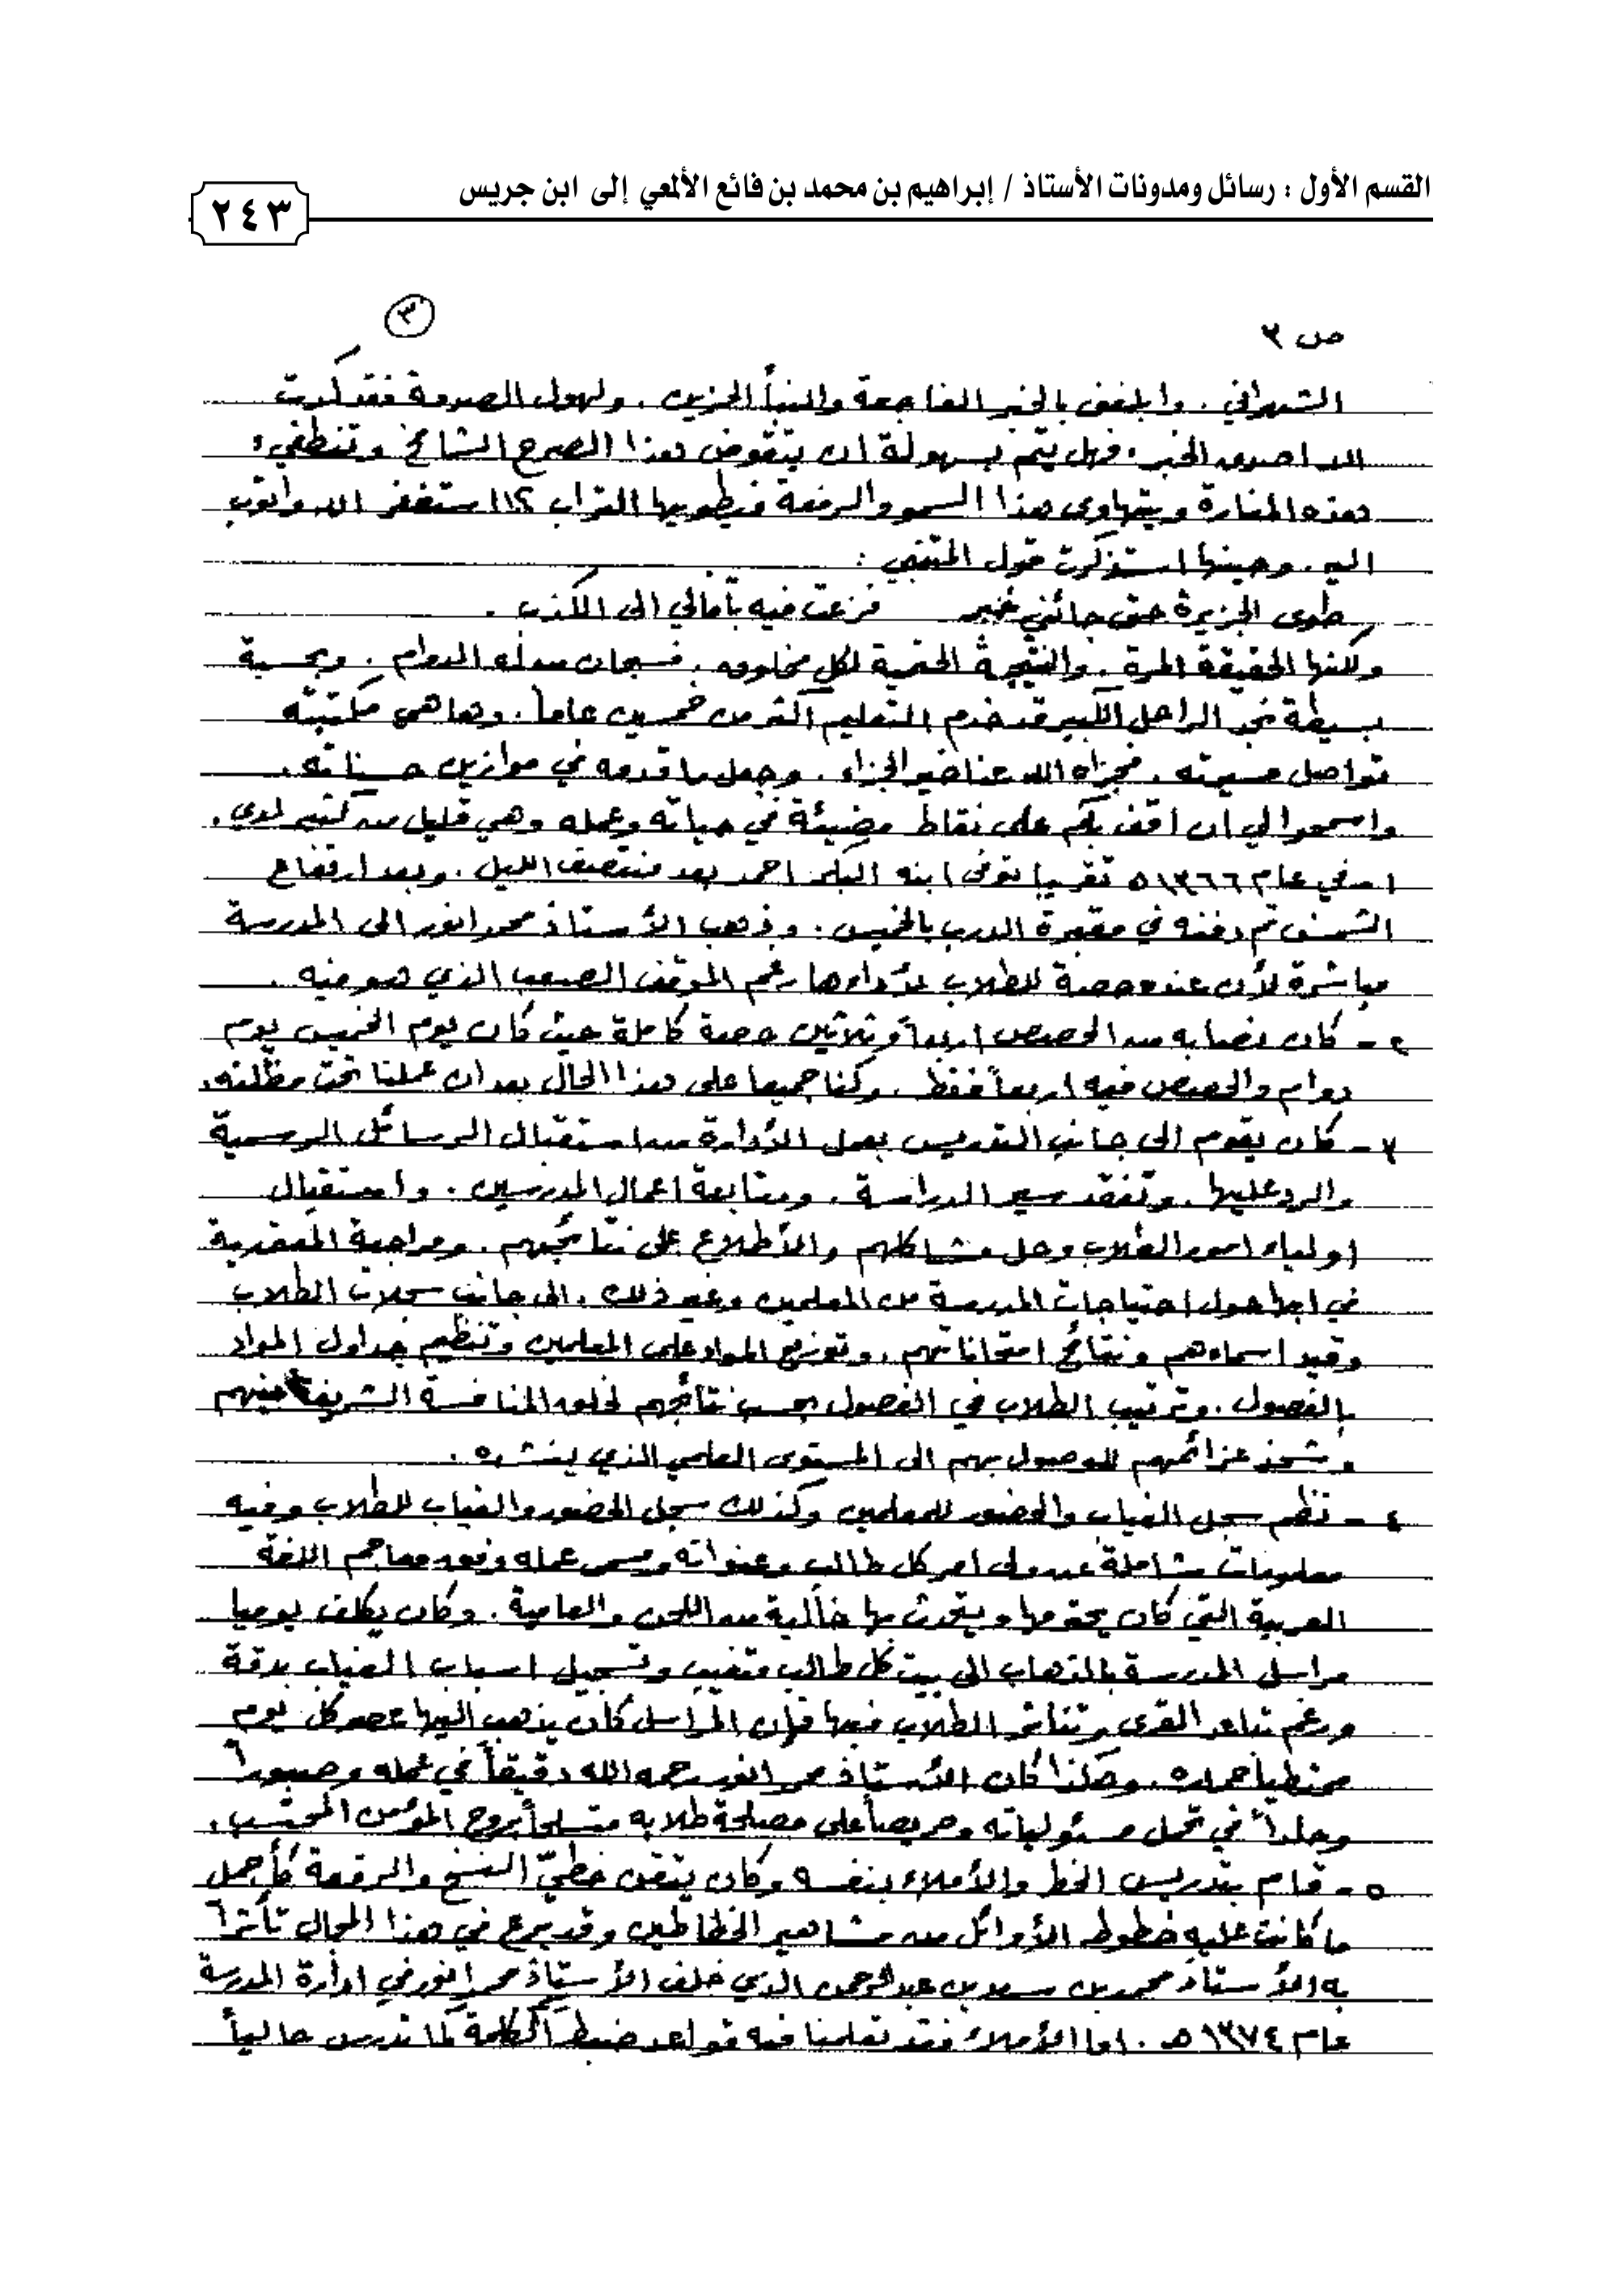 القسم الأول : رسائل ومدونات الأستاذ / إبراهيم بن محمد بن فائع الألمعي إلى ابن جريس
٢٤٣
٣
ص ٢
الشهراني . وابلغني بالخبر الفاجعة والنبأ الحزين . ولهول الصدمة فقد كدت
الا اصدق الخبر . فهل يتم بسهولة ان يتقوض هذا الصرح الشامخ وتنطفيء
هذه المنارة ويتهاوى هذا السمو والرفعة فيطويها التراب ؟!! استغفر الله واتوب
اليه . وحينها استذكرت قول المتنبي :
طوى الجزيرة حتى جائني خبر فزعت فيه بآمالي الى الكذب .
ولكنها الحقيقة المرة . والنتيجة الحتمية لكل مخلوق . فسبحان من له الدوام . وبحسبة
بسيطة نجد الراحل الكبير قد خدم التعليم اكثر من خمسين عاماً . وها هي مكتبته
تواصل مسيرته . فجزاه الله عنا خير الجزاء . وجعل ما قدمه في موازين حسناته .
واسمحوا لي ان اقف بكم على نقاط مضيئة في حياته وعمله وهي قليل من كثير لدي .
١ - في عام ١٣٦٦ه تقريبا توفى ابنه البكر احمد بعد منتصف الليل . وبعد ارتفاع
الشمس تم دفنه في مقبرة الدرب بالخميس . وذهب الأستاذ محمد انور الى المدرسة
مباشرة لأن عنده حصة للطلاب لأداءها رغم الموقف الصعب الذي هو فيه .
٢ - كان نصابه من الحصص اربعاً وثلاثين حصة كاملة حيث كان يوم الخميس يوم
دوام والحصص فيه اربعاً فقط . وكنا جميعا على هذا الحال بعد ان عملنا تحت مظلته .
٣ - كان يقوم الى جانب التدريس بعمل الأدارة من استقبال الرسائل الرسمية
والرد عليها . وتفقد سير الدراسة . ومتابعة اعمال المدرسين . واستقبال
اولياء امور الطلاب وحل مشاكلهم والأطلاع على نتائجهم . ومراجعة المعتمدية
في ابها حول احتياجات المدرسة من المعلمين وغير ذلك . الى جانب سجلات الطلاب
وقيد اسماءهم ونتائج امتحاناتهم . وتوزيع المواد على المعلمين وتنظيم جداول المواد
بالفصول . وترتيب الطلاب في الفصول بحسب نتائجهم لخلق المنافسة الشريفة بينهم
وشحذ عزائمهم للوصول بهم الى المستوى العلمي الذي ينشده .
٤ - نظم سجل الغياب والحضور للمعلمين وكذلك سجل الحضور والغياب للطلاب وفيه
معلومات شاملة عن ولي امر كل طالب وعنوانه ومسمى عمله وفق معاجم اللغة
العربية التي كان يحترمها ويتحدث بها خالية من اللحن والعامية . وكان يكلف يوميا
مراسل المدرسة بالذهاب الى بيت كل طالب متغيب وتسجيل اسباب الغياب بدقة
ورغم تباعد القرى وتناثر الطلاب فيها فإن المراسل كان يذهب اليها عصر كل يوم
ممتطياً حماره . وهكذا كان الأستاذ محمد انور رحمه الله دقيقاً في عمله وصبوراً
وجلداً في تحمل مسئولياته وحريصاً على مصلحة طلابه متسلحاً بروح المؤمن المحتسب .
٥ - قام بتدريس الخط والأملاء بنفسه وكان يتقن خطيّ النسخ والرقعة كأجمل
ما كانت عليه خطوط الأوائل من مشاهير الخطاطين وقد برع في هذا المجال تأثراً
به الأستاذ محمد بن سعد بن عبدالرحمن الذي خلف الأستاذ محمد انور في ادارة المدرسة
عام ١٣٧٤ هـ . اما الأملاء فقد تعلمنا فيه قواعد ضبط الكلمة كما تدرس حالياً